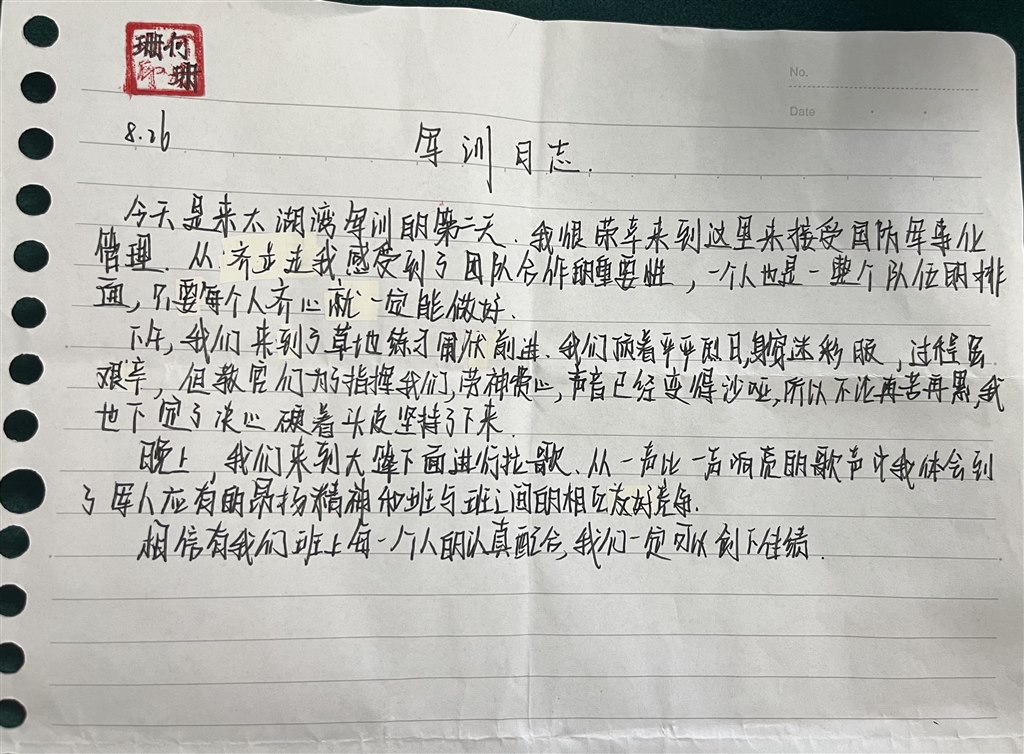 珊何
珊
No.
Date
8.26
军训日志.
今天是来太湖湾军训的第二天.我很荣幸来到这里来接受国防军事化
管理.从齐步走我感受到了团队合作的重要性,一个人也是一整个队伍的排
面,只要每个人齐心就一定能做好.
下午,我们来到了草地练习匍伏前进.我们顶着烈日,身穿迷彩服,过程虽
艰辛,但教官们为了指挥我们,劳神费心,声音已经变得沙哑,所以不论再苦再累,我
也下定了决心硬着头皮坚持了下来.
晚上,我们来到大篷下面进行拉歌.从一声比一声响亮的歌声中我体会到
了军人应有的昂扬精神和班与班之间的相互友好竞争.
相信有我们班上每一个人的认真配合,我们一定可以创下佳绩.